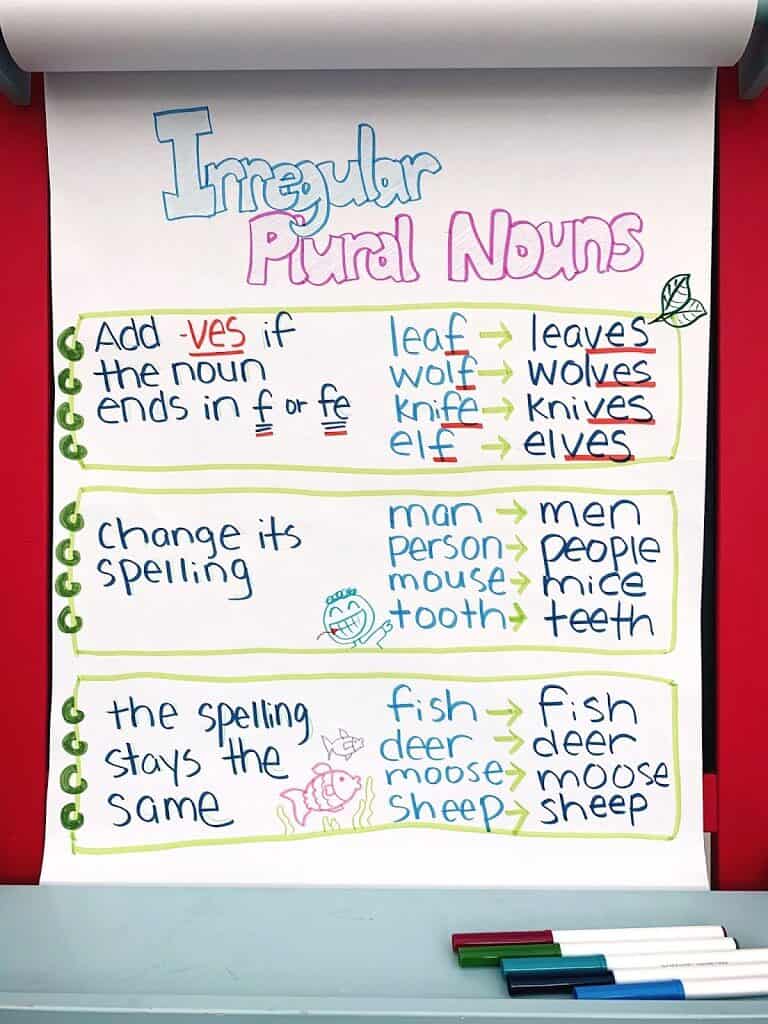 Irregular
Plural Nouns
Add -ves if
the noun
ends in f or fe
leaf → leaves
wolf → wolves
knife → knives
elf → elves
change its
spelling
man → men
person → people
mouse → mice
tooth → teeth
the spelling
stays the
same
fish → fish
deer → deer
moose → moose
sheep → sheep